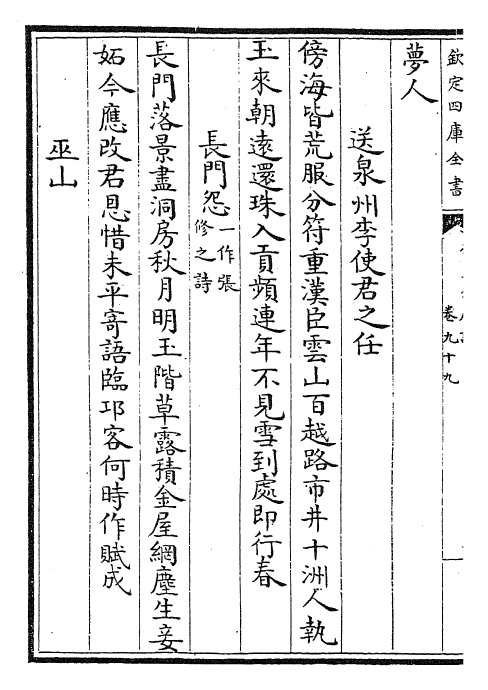 欽定四庫全書
卷九十九
夢人
送泉州李使君之任
傍海皆荒服分符重漢臣雲山百越路市井十洲人執
玉來朝遠還珠入貢頻連年不見雪到處即行春
長門怨一作張脩之詩
長門落景盡洞房秋月明玉階草露積金屋網塵生妾
妬今應改君恩惜未平寄語臨邛客何時作賦成
巫山